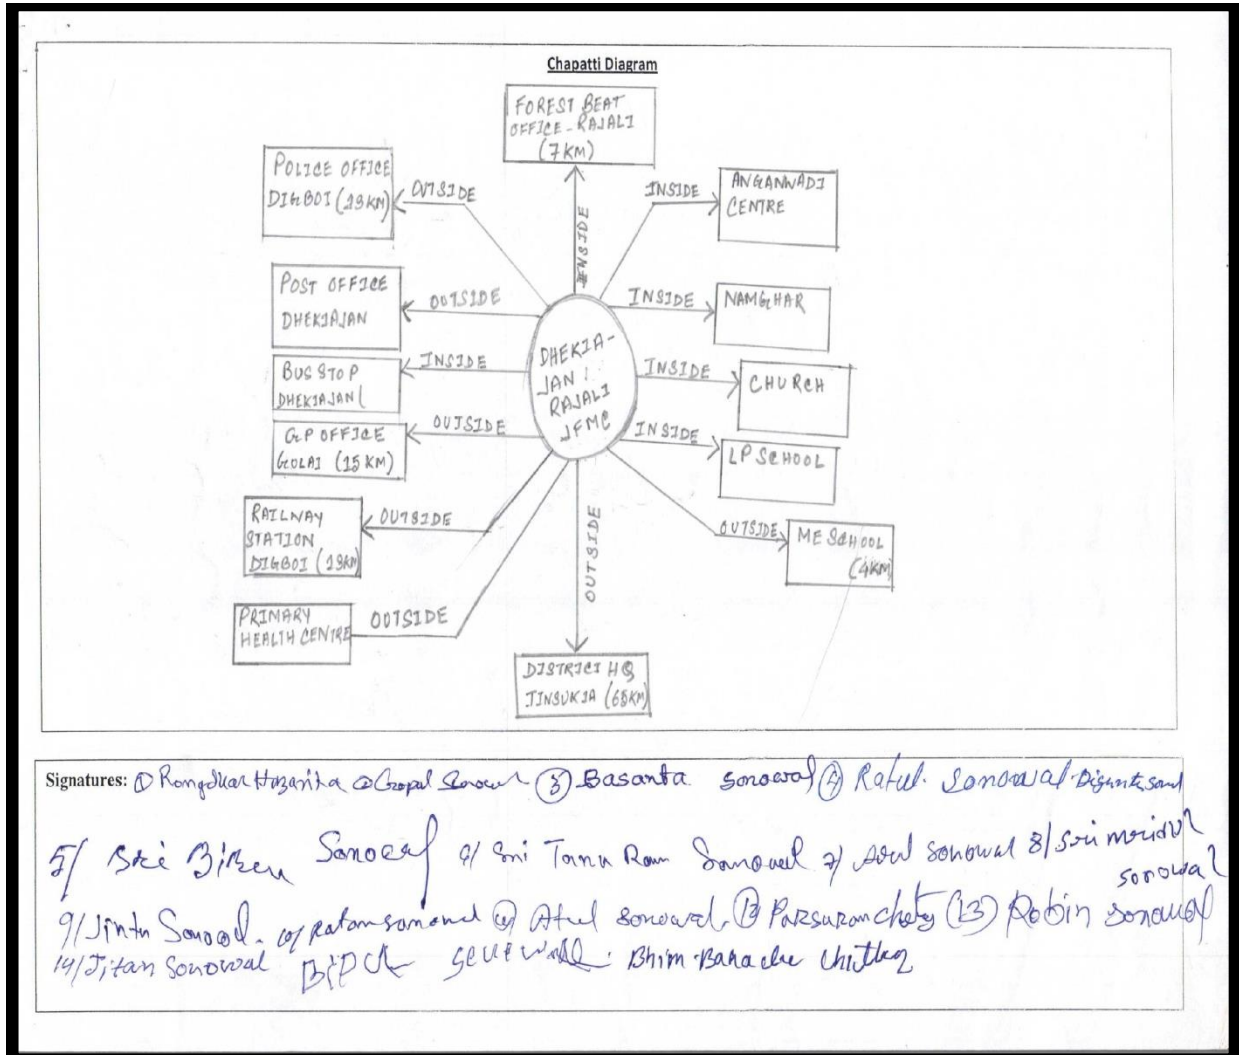 Chapatti Diagram
FOREST BEAT
OFFICE - RAJALI
(7 KM)
POLICE OFFICE
DIGBOI (19KM)
OUTSIDE
INSIDE
INSIDE
ANGANWADI
CENTRE
POST OFFICE
DHEKIAJAN
OUTSIDE
INSIDE
NAMGHAR
BUS STOP
DHEKIAJAN
INSIDE
DHEKIA-
JAN
RAJALI
JFMC
INSIDE
CHURCH
GP OFFICE
GOLAI (15 KM)
OUTSIDE
INSIDE
LP SCHOOL
RAILWAY
STATION
DIGBOI (19KM)
OUTSIDE
OUTSIDE
OUTSIDE
ME SCHOOL
(4KM)
PRIMARY
HEALTH CENTRE
OUTSIDE
DISTRICT HQ
TINSUKIA (68KM)
Signatures: ① Hazarika ② Gopal ③ Basanta sonowal ④ Ratul Sonowal
5/ Sri Biren Sonowal 6/ Sri Tanu Ram Sonowal 7/ sonowal 8/ Sri
sonowal
9/ Jintu Sonowal 10/ Ratan sonowal 11 Atul sonowal (13) Robin Sonowal
14/ Jitan Sonowal